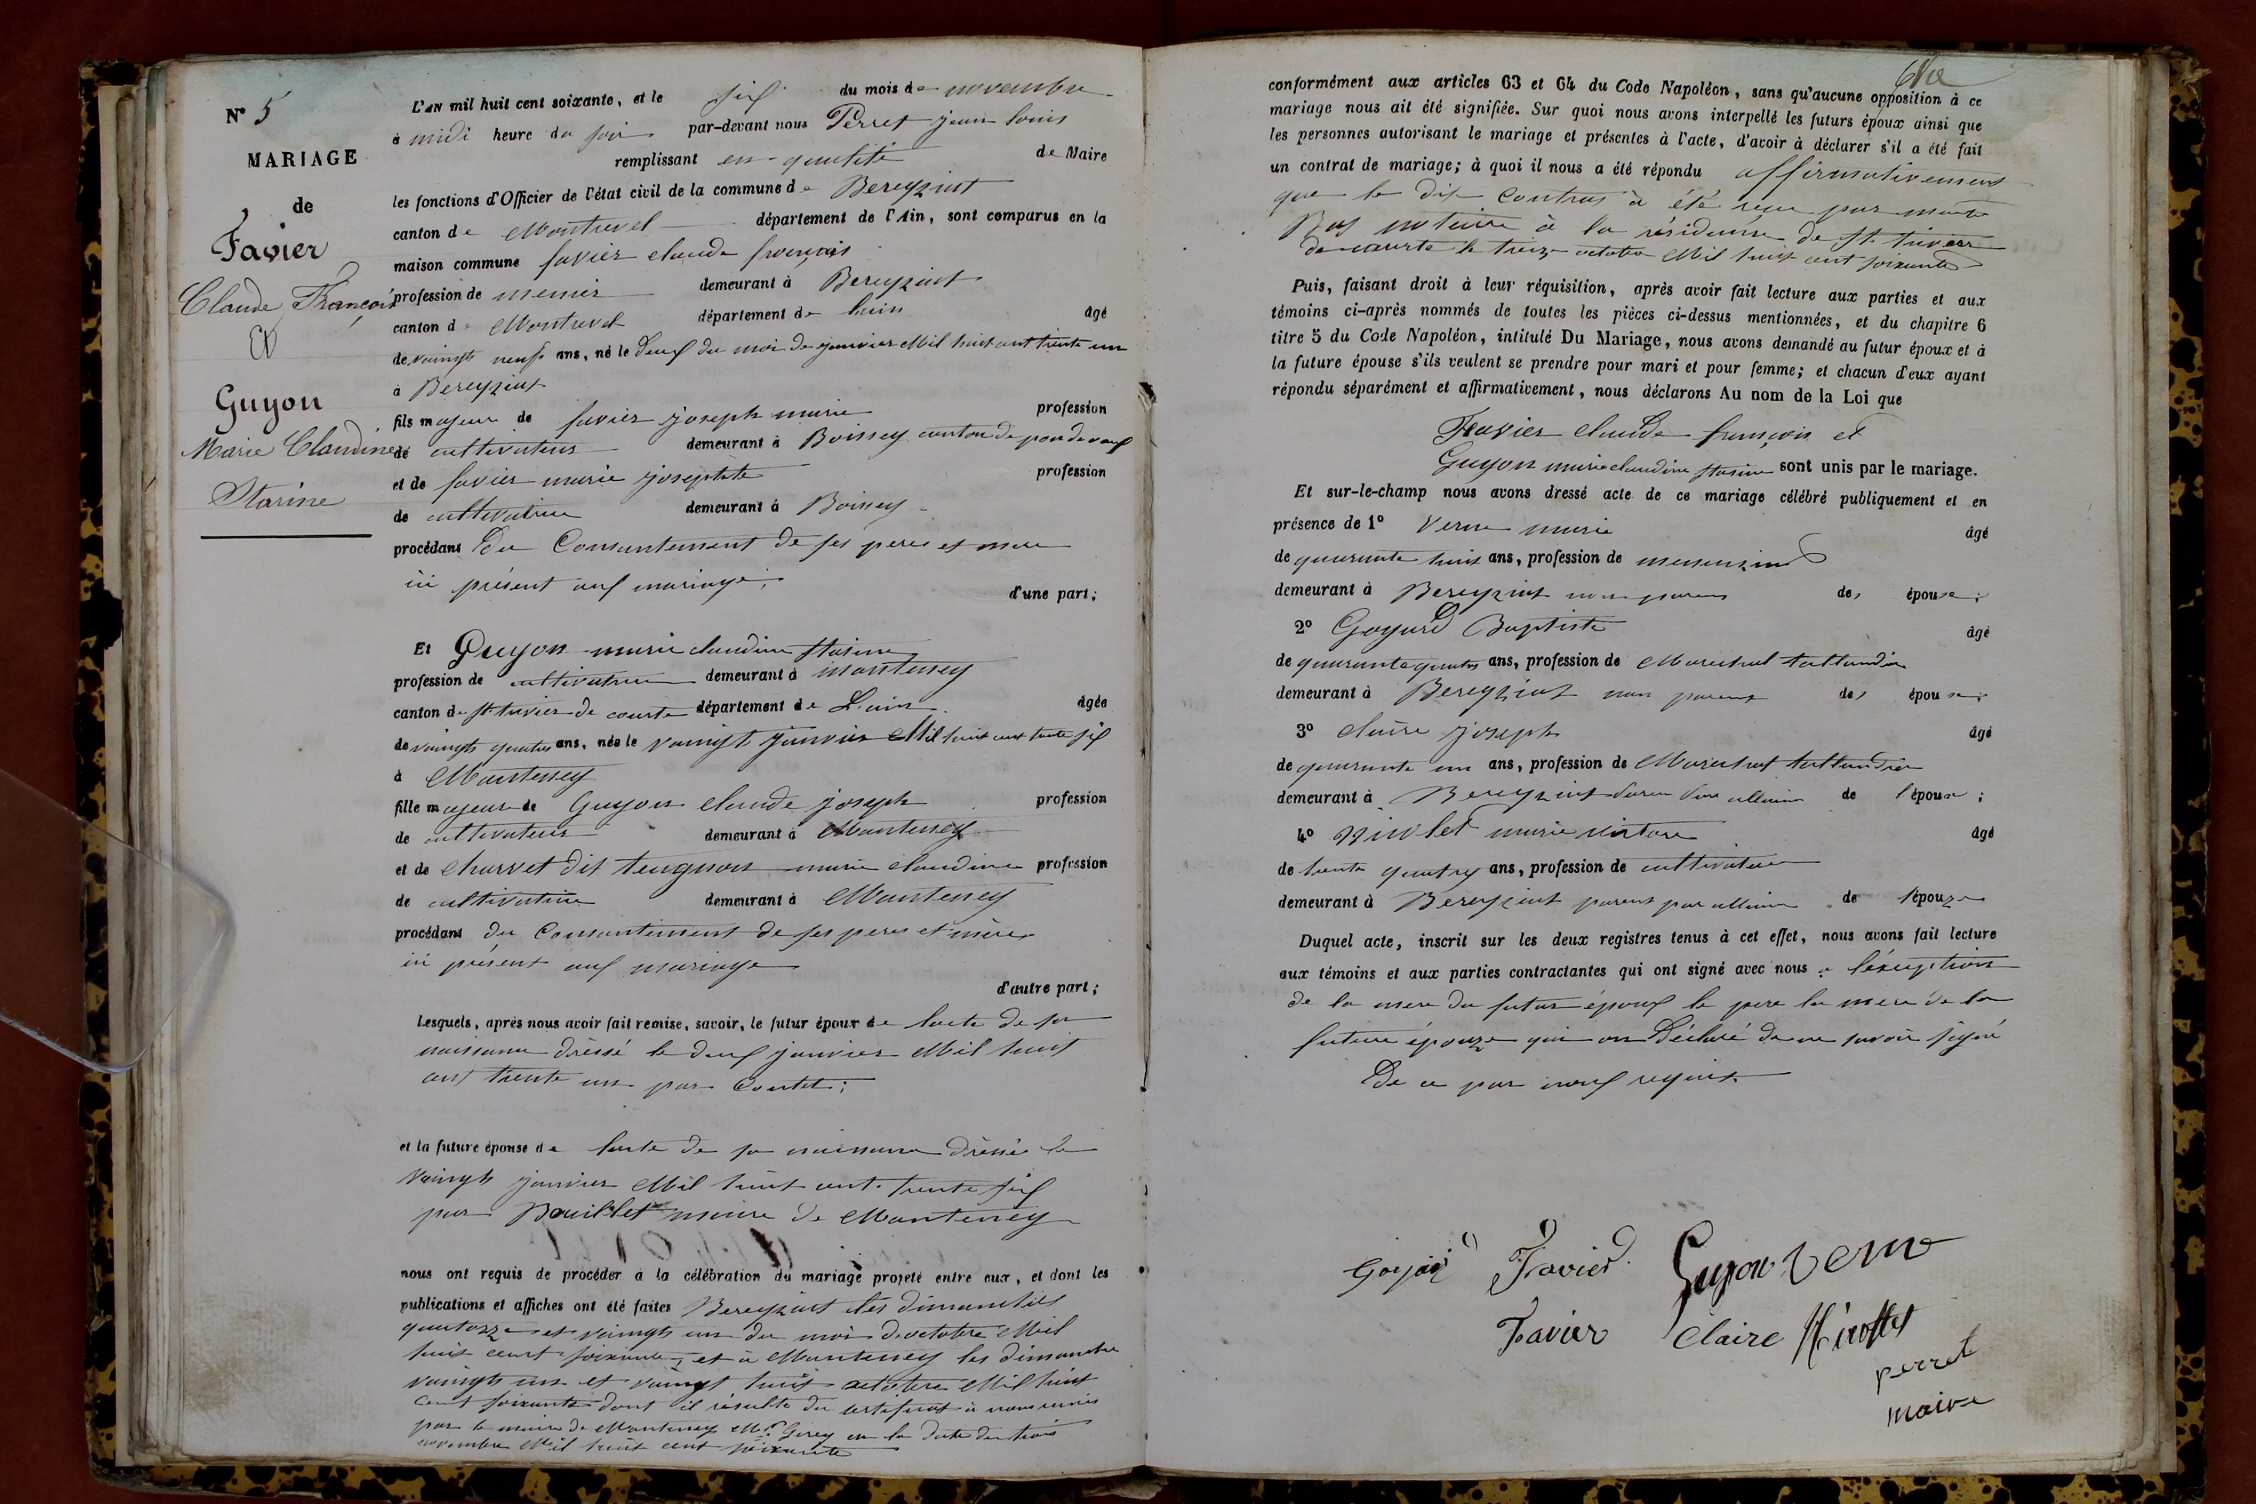 N° 5
MARIAGE
de
Favier
Claude François
Et
Guyon
Marie Claudine
Starine
L'AN mil huit cent soixante, et le six du mois de novembre
à midi heure du soir par-devant nous Perret jean louis
remplissant en qualité de Maire
les fonctions d'Officier de l'état civil de la commune de Bereyziat
canton de Montrevel département de l'Ain, sont comparus en la
maison commune favier claude françois
profession de meunier demeurant à Bereyziat
canton de Montrevel département de lain âgé
de vaingts neuf ans, né le deux du moi de janvier Mil huit cent trente un
à Bereyziat
fils majeur de favier joseph marie profession
de cultivateur demeurant à Boissey canton de pon de vaux
et de favier marie josephte profession
de cultivatrice demeurant à Boissey
procédant du Consentement de ses peres et mere
ici présent aux mariage; d'une part;
Et Guyon marie claudine starine
profession de cultivatrice demeurant à Manteney
canton de St trivier de courte département de L'ain âgée
de vaingts quatre ans, née le vaingt janvier Mil huit cent trente six
à Manteney
fille majeure de Guyon claude joseph profession
de cultivateur demeurant à Manteney
et de charvet dit tengnon marie claudine profession
de cultivatrice demeurant à Manteney
procédant du Consentiment de ses peres et mère
ici présent aux mariage
d'autre part;
Lesquels, après nous avoir fait remise, savoir, le futur époux de lacte de sa
naissance dréssé le deux janvier Mil huit
cent trente un par Coutet;
et la future épouse de lacte de sa naissance dréssé le
vaingts janvier Mil huit cent trente six
par Bouillet maire de Manteney
nous ont requis de procéder à la célébration du mariage projeté entre eux, et dont les
publications et affiches ont été faites Bereyziat les dimanches
quatorze et vaingts un du mois doctobre Mil
huit cent soixante, et à Manteney les dimanche
vaingts un et vaingt huit octobre Mil huit
cent soixante dont il résulte du certificat à nous remis
par le maire de Mantenay Mr Gerey en la date du trois
novembre Mil huit cent soixante
conformément aux articles 63 et 64 du Code Napoléon, sans qu'aucune opposition à ce
mariage nous ait été signifiée. Sur quoi nous avons interpellé les futurs époux ainsi que
les personnes autorisant le mariage et présentes à l'acte, d'avoir à déclarer s'il a été fait
un contrat de mariage; à quoi il nous a été répondu affirmativement
que le dit contrat à été reçu par maitre
notaire à la résidence de St trivier
de courte le treize octobre Mil huit cent soixante
Puis, faisant droit à leur réquisition, après avoir fait lecture aux parties et aux
témoins ci-après nommés de toutes les pièces ci-dessus mentionnées, et du chapitre 6
titre 5 du Code Napoléon, intitulé Du Mariage, nous avons demandé au futur époux et à
la future épouse s'ils veulent se prendre pour mari et pour femme; et chacun d'eux ayant
répondu séparément et affirmativement, nous déclarons Au nom de la Loi que
Favier claude françois et
Guyon marie claudine starine sont unis par le mariage.
Et sur-le-champ nous avons dressé acte de ce mariage célébré publiquement et en
présence de 1° Verne marie âgé
de quarante huit ans, profession de
demeurant à Bereyziat non parens des épouse;
2° Goyard Baptiste âgé
de quarante quatre ans, profession de Marechal tallandier
demeurant à Bereyziat non parens des épouse;
3° claire joseph âgé
de quarante un ans, profession de Marechal tallandier
demeurant à Bereyziat de l'épouse;
4° Nirollet marie âgé
de trente quatre ans, profession de cultivateur
demeurant à Bereyziat parent par alliance de l'épouze
Duquel acte, inscrit sur les deux registres tenus à cet effet, nous avons fait lecture
aux témoins et aux parties contractantes qui ont signé avec nous a l'éxeption
de la mere du futur époux le pere la mere de la
future épouze qui on déclaré de ne savoir signé
De ce par nous requis
Goyard Favier Guyon Verne
Favier Claire Nirollet
perret
maire